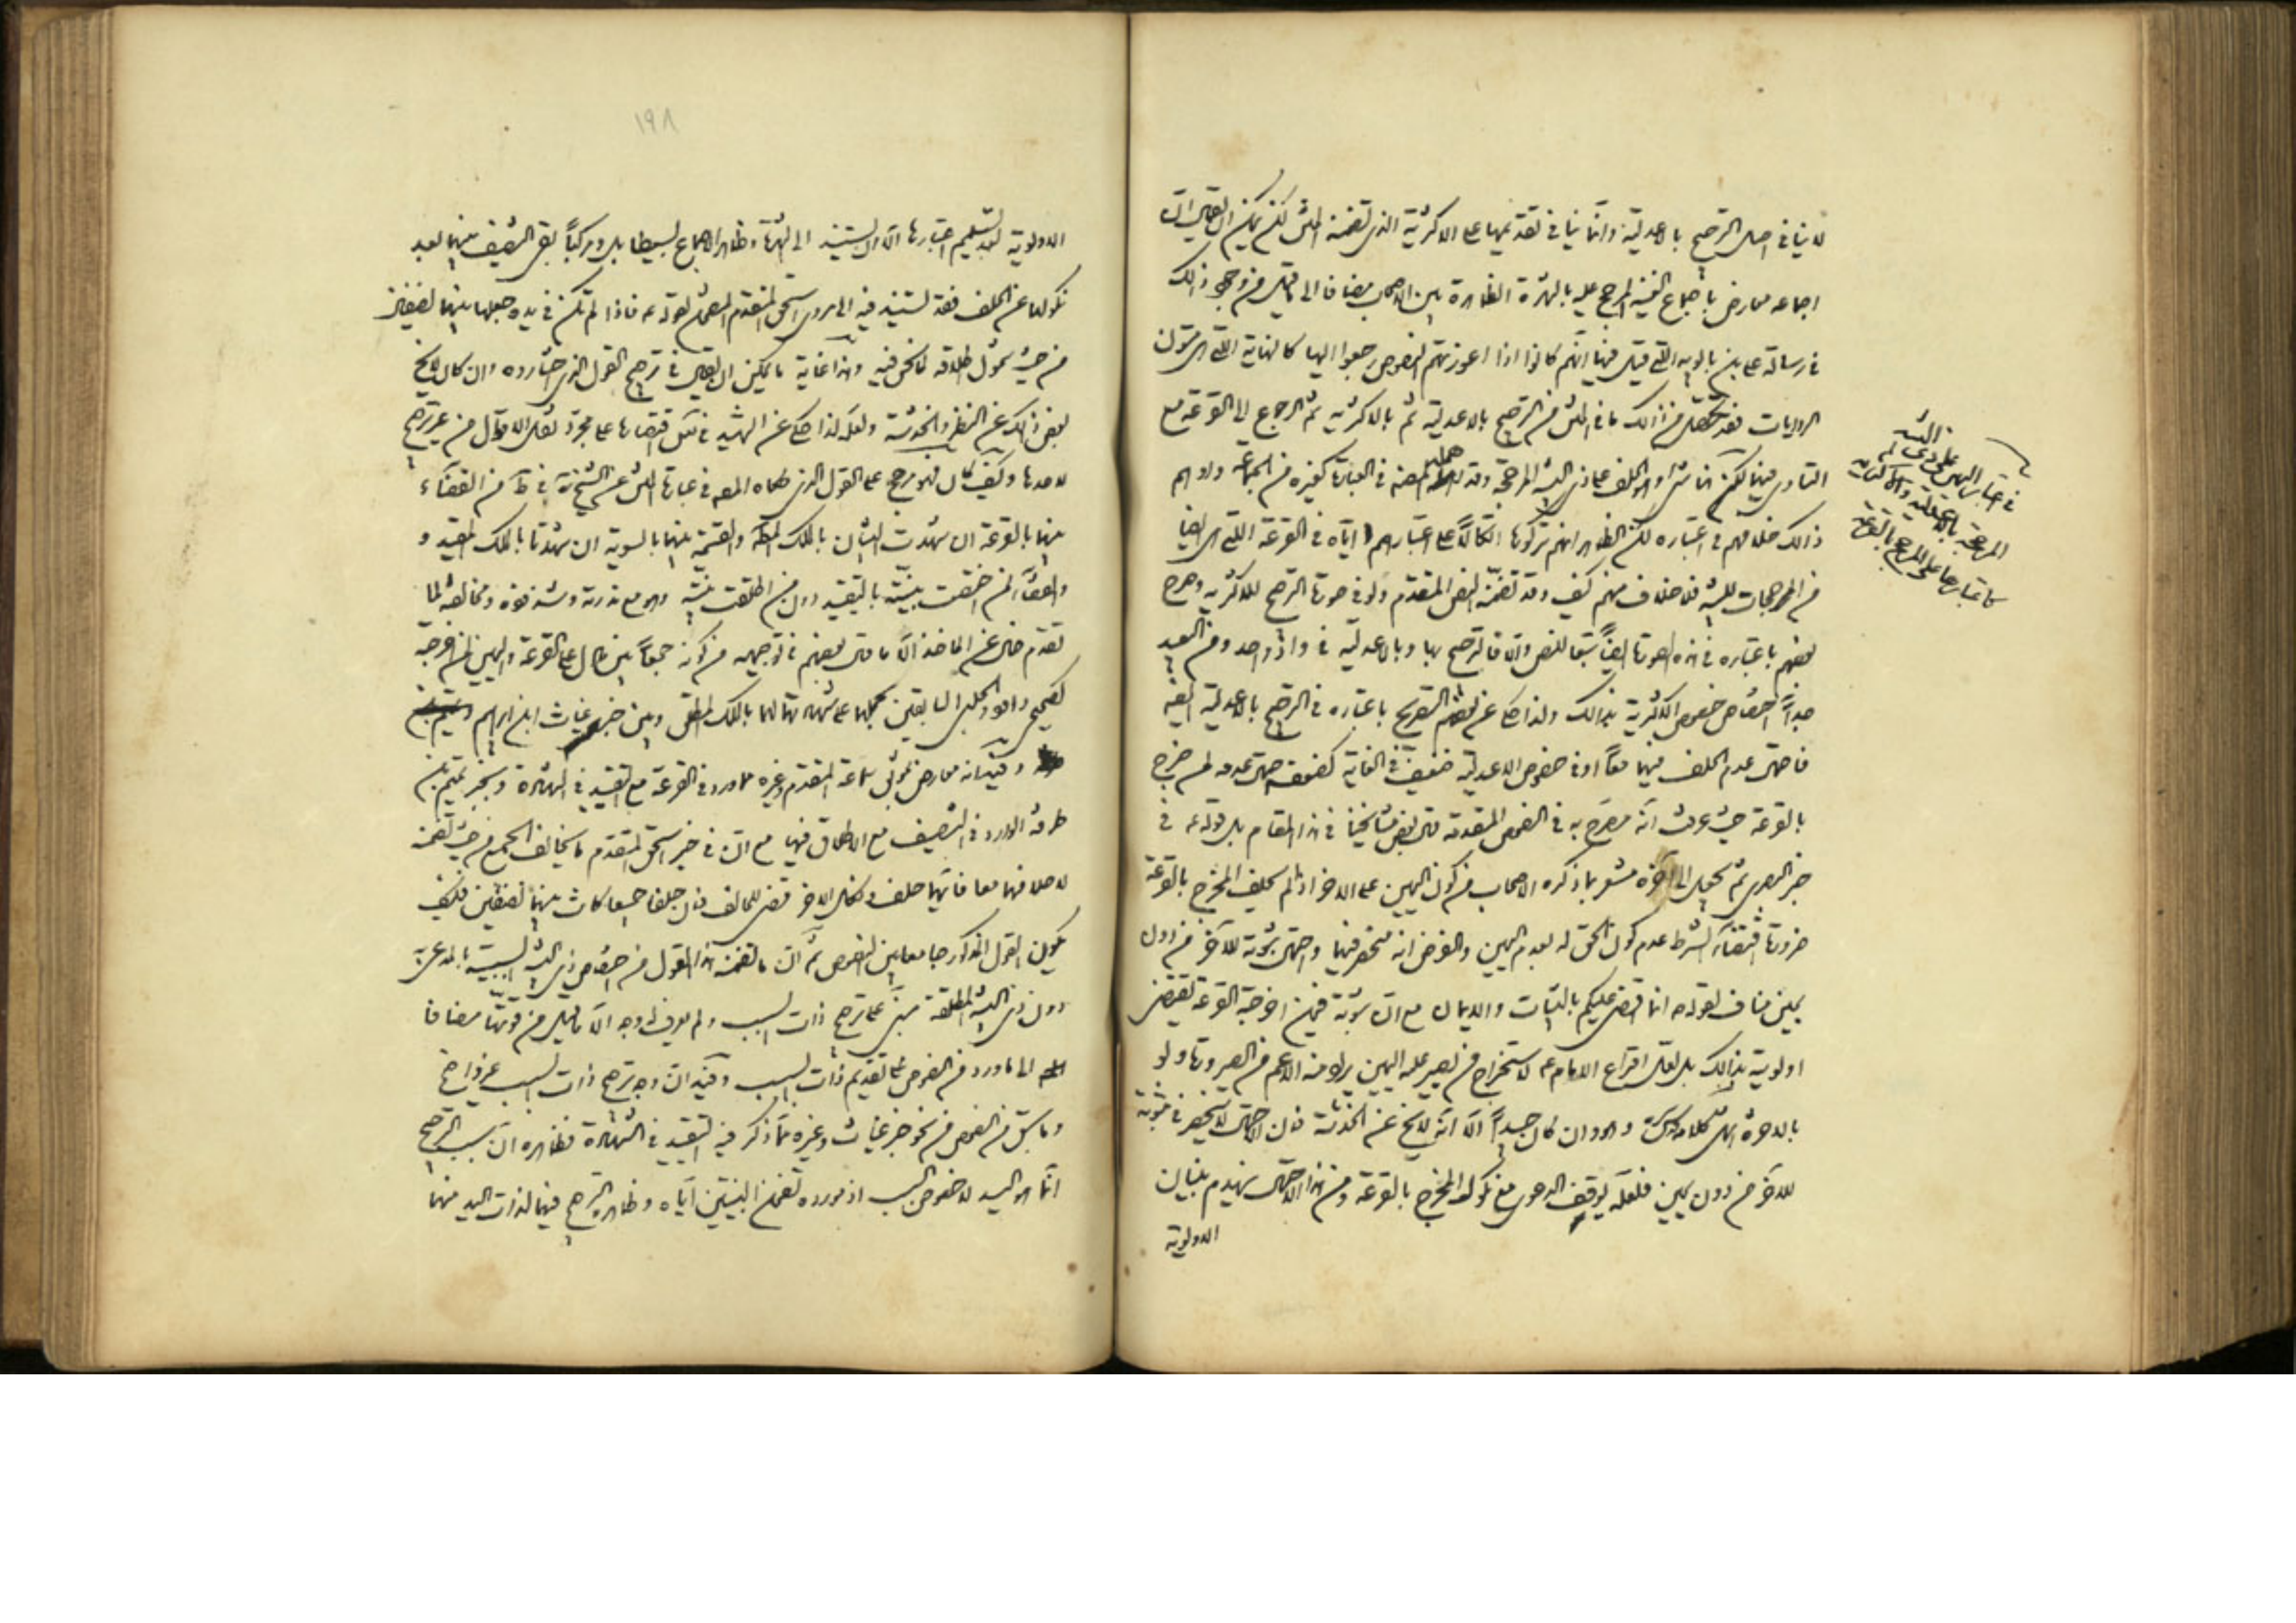 لا ينافى اصل الترجيح بالاعدلية وانما ينافى تقديمها على الاكثرية الذى تضمنه المتن لكن يمكن ان يقال ان
اجماعه معارض باجماع الغنية المرجح عليه بالشهرة الظاهرة بين الاصحاب مضافا الى ما قيل من وجود ذلك
فى رسالة على بن بابويه التى قيل فيها انهم كانوا اذا اعوزتهم النصوص رجعوا اليها كالنهاية التى هى متون
الروايات فقد تحصل من ذلك ما فى المتن من الترجيح بالاعدلية ثم بالاكثرية ثم الرجوع الى القرعة مع
التساوى فيهما لكن هنا شىء وهو الحلف على ذى البينة المرجحة وقد اهمله المصنف فى العبارة كغيره من الجماعة
ذلك خلافهم فى اعتباره لكن الظاهر انهم تركوها اتكالا على اعتبارهم اياه فى القرعة التى هى ايضا
من المرجحات للبينة فلا خلاف منهم كيف وقد تضمنه النص المتقدم ولو فى صورة الترجيح بالاكثرية وصرح
بعضهم باعتباره فى هذه الصورة ايضا تبعا للنص والا فالترجيح بها وبالاعدلية فى واد واحد ومن البعيد
جدا اختصاص خصوص الاكثرية بذلك ولذا حكى عن بعضهم التصريح باعتباره فى الترجيح بالاعدلية ايضا
فاحتمال عدم الحلف فيهما معا او فى خصوص الاعدلية ضعيف فى الغاية كضعف احتمال عدمه لمن خرج
بالقرعة حيث عرفت انه مصرح به فى النصوص المتقدمة قال بعض مشايخنا فى هذا المقام بل قوله عه فى
خبر البصرى ثم يجعل الى آخره مشعر بما ذكره الاصحاب من كون اليمين على الاخر اذا لم يحلف المخرج بالقرعة
ضرورة اقتضاء الشرط عدم كون الحق له بعدم اليمين والفرض انه منحصر فيهما واحتمال ثبوته للاخر من دون
يمين مناف لقوله ص انما اقضى عليكم بالبينات والايمان مع ان ثبوته فيمن اخرجته القرعة يقتضى
اولوية بذلك بل لعل اقراع الامام عه لاستخراج من يصير عليه اليمين يراد منه الاعم من الصيرورة ولو
بالاخرة انتهى كلامه وهو وان كان جيدا الا انه لا يخ عن الخدشة فان الاحتمال لا ينحصر فى ثبوته
للاخر من دون يمين فلعله يوقف الدعوى مع نكول المخرج بالقرعة ومن هذا الاحتمال ينهدم بنيان
الاولوية
فى اعتبار اليمين على ذى البينة
المرجحة بالاعدلية والاكثرية
كاعتبارها على المرجح بالقرعة
١٩٨
الاولوية بعد تسليم اعتبارها الا ان يستند الى الشهرة وظاهر الاجماع بسيطا بل ومركبا بقى التنصيف بينهما بعد
نكولهما عن الحلف فقد يستند فيه الى مروى اسحق المتقدم المتضمن لقوله عه فاذا لم تكن فى يده جعلها بينهما نصفين
من حيث شمول اطلاقه لما نحن فيه وهذا غاية ما يمكن ان يقال فى ترجيح القول الذى اختاره وان كان لا يخ
بعض ذلك عن النظر والخدشة ولعله لذا حكى عن الشهيد فى نكت اقتصارها على مجرد نقل الاقوال من غير ترجيح
لاحدها وكيف كان فهو مرجح على القول الذى حكاه المصه فى عبارة المتن عن الشيخ ره فى ط من القضاء
بينهما بالقرعة ان شهدت البينتان بالملك المطلق والقسمة بينهما بالسوية ان شهدتا بالملك المقيد و
والقضاء لمن اختصت بينته بالتقييد دون من اطلقت بينته وهو مع ندرته وشذوذه ومخالفته لما
تقدم خال عن الماخذ الا ما قال بعضهم فى توجيهه من كونه جمعا بين ما دل على القرعة واليمين لمن اخرجته
كصحيحى داود والحلبى السابقين بحملهما على شهادتهما لهما بالملك المطلق وبين خبر غياث ابن ابراهيم
وفيه انه معارض بموثق سماعة المتقدم وغيره مما ورد فى القرعة مع التقييد فى الشهادة وبخبر تميم بن
طرفة الوارد فى التنصيف مع الاطلاق فيها مع ان فى خبر اسحق المتقدم ما يخالف الجمع من حيث تضمنه
لاحلافهما معا فايهما حلف ونكل الاخر قضى للحالف فان حلفا جميعا كانت بينهما نصفين فكيف
يكون القول المذكور جامعا بين النصوص ثم ان ما تضمنه هذا القول من اختصاص ذى البينة السببية بالمدعى به
دون ذى البينة المطلقة مبنى على ترجيح ذات السبب ولم يعرف له وجه الا ما قيل من قوتها مضافا
الى ما ورد من النصوص على تقديم ذات السبب وفيه ان وجه ترجيح ذات السبب غير واضح
وما سبق من النصوص من نحو خبر غياث وغيره مما ذكر فيه التقييد فى الشهادة فظاهره ان سبب الترجيح
انما هو اليد لا خصوص السبب اذ مورده تضمن البينتين اياه وظاهره الترجيح فيهما لذات اليد منهما